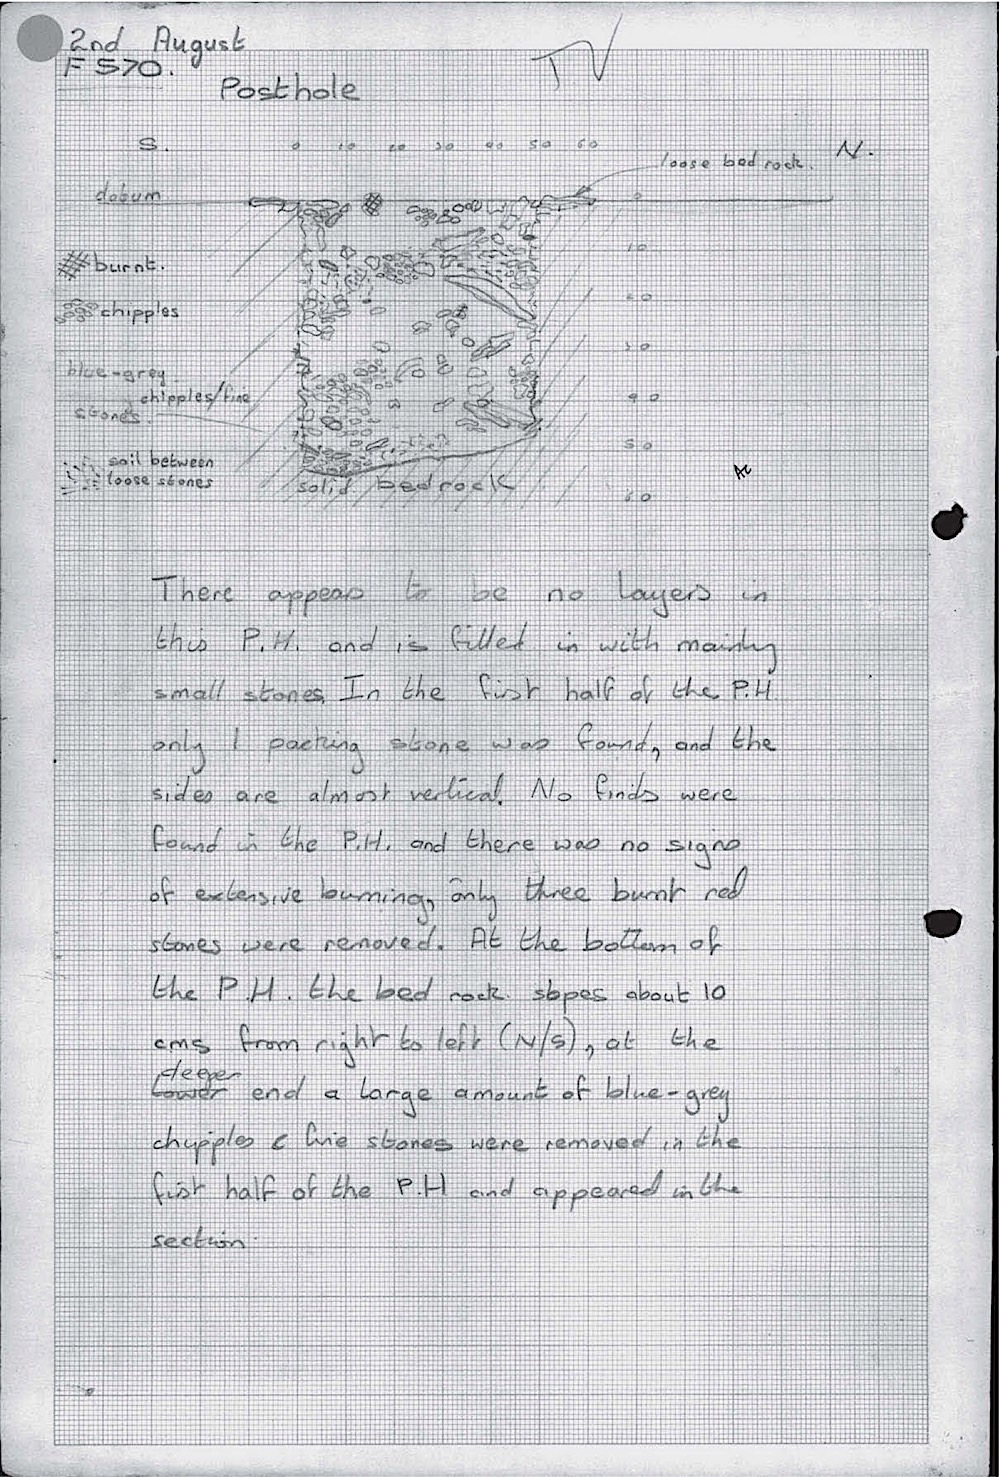 2nd August
F 570.
Posthole
TV
S. 0 10 20 30 40 50 60 N.
loose bed rock.
datum 0
10
burnt.
20
chipples
30
blue-grey
chipples/fine
40
stones.
50
soil between
loose stones
solid bedrock
60
There appears to be no layers in
this P.H. and is filled in with mainly
small stones. In the first half of the P.H.
only 1 packing stone was found, and the
sides are almost vertical. No finds were
found in the P.H. and there was no signs
of extensive burning, only three burnt red
stones were removed. At the bottom of
the P.H. the bed rock slopes about 10
cms from right to left (N/S), at the
deeper
lower end a large amount of blue-grey
chupples & fine stones were removed in the
fist half of the P.H and appeared in the
section.